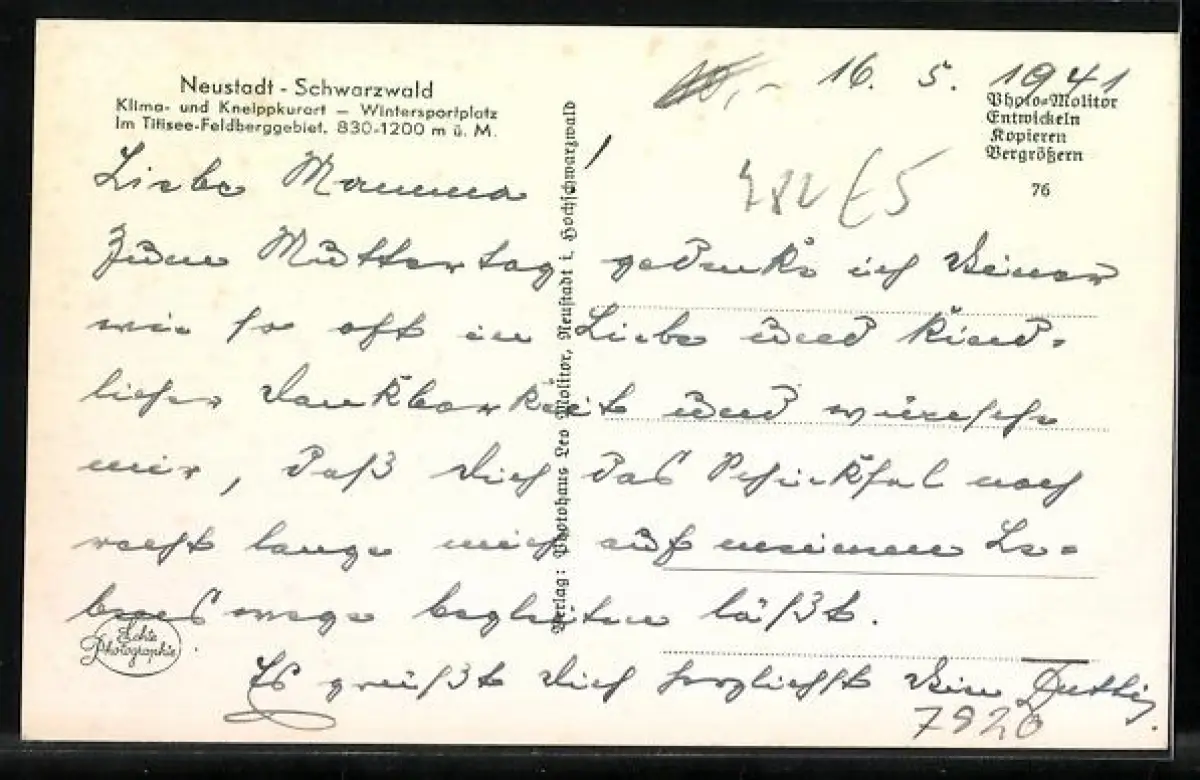 Neustadt - Schwarzwald
Klima- und Kneippkurort — Wintersportplatz
Im Titisee-Feldberggebiet. 830-1200 m ü. M.
16. 5. 1941
Photo=Molitor
Entwickeln
Kopieren
Vergrößern
76
Verlag: Photohaus Leo Molitor, Neustadt i. Hochschwarzwald
Liebe Mamma
Zum Muttertag gedenke ich Deiner
wie so oft in Liebe und kind-
licher Dankbarkeit und wünsche
mir, daß Dich das Schicksal noch
recht lange mich auf meinem Le=
benswege begleiten läßt.
Es grüßt Dich herzlichst Dein
Echte
Photographie
7920